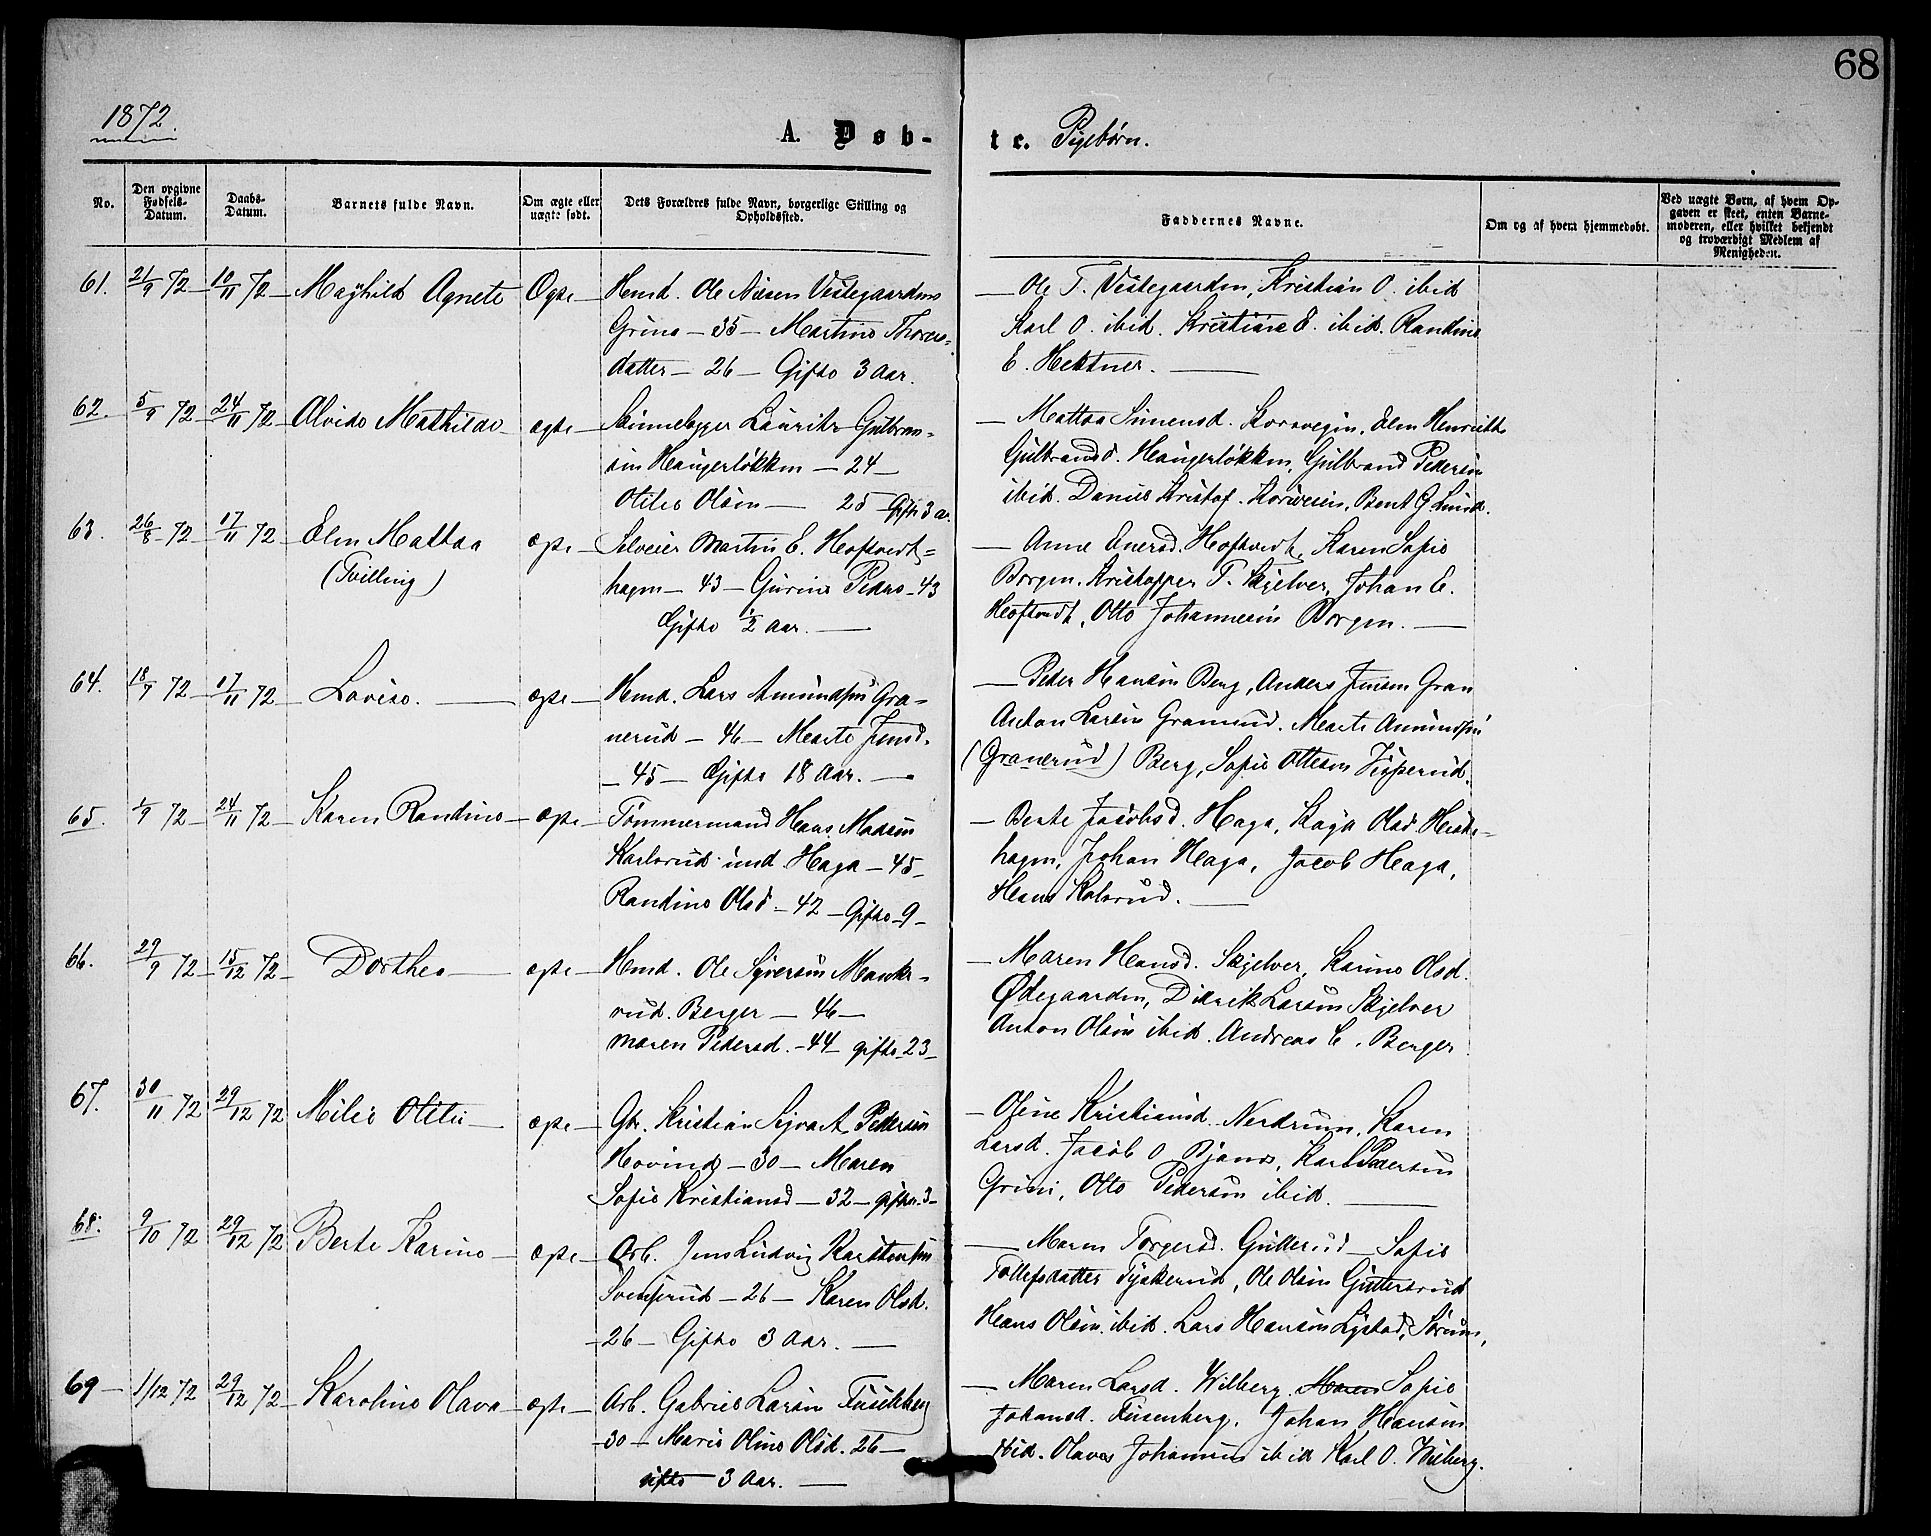 68
1872.
A. Døb-
te. Pigebørn.
No.
Den opgivne Fødsels-Datum.
Daabs-Datum.
Barnets fulde Navn.
Om ægte eller uægte født.
Dets Forældres fulde Navn, borgerlige Stilling og Opholdssted.
Faddernes Navne.
Om og af hvem hjemmedøbt.
Ved uægte Børn, af hvem Opgaven er skeet, enten Barnemoderen, eller hvilket bekjendt og troværdigt Medlem af Menigheden.
61. 21/9 72 10/11 72 Maghild Agnete Ægte Hmd. Ole Vestegaarden
Grine - 35 - Martine Thores-
datter - 26 - Gifte 3 Aar.
Ole T. Vestegaarden, Kristian O. ibid
Karl O. ibid. Kristiane E. ibid. Randine
E. Hektner.
62. 5/9 72 24/11 72 Alvide Mathilde ægte Gulbran-
sen Haugerløkken - 24 -
Otilie Olsen - 25 - Gifte 3 a.
Mathea Simensd. Korsvegen, Elen Henriette
Gulbrandsd. Haugerløkken, Gulbrand Pedersen
ibid. Kristof. Korsveien, Bent G. Lund.
63. 26/8 72 17/11 72 Elen Mathea ægte Selveier Martin E. Hoftvedt-
(Tvilling)
hagen - 43 - Gurine Peders - 43
Gifte 1/2 Aar.
Anne Enersd. Hoftvedt, Karen Sofie
Borgen. Kristopper P. Skjelver, Johan E.
Hoftvedt, Otto Johannesen Borgen.
64. 18/9 72 17/11 72 Lovise. ægte Hmd. Lars Amundsen Gra-
nerud - 46 - Marte Jensd.
- 45 - Gifte 18 Aar.
Peder Hansen Berg, Anders Jensen Gran
Anton Larsen Granerud. Marte Amundsen
(Granerud) Berg, Sofie Ottesen
65. 1/9 72 24/11 72 Karen Randine ægte Tømmermand Hans Madsen
Karlsrud und. Haga - 45 -
Randine Olsd - 42 - Gifte - 9 -
Berte Jacobsd. Haga, Kaja Olsd.
hagen, Johan Haga, Jacob Haga,
Hans Kalsrud.
66. 29/9 72 15/12 72 Dorthea ægte Hmd. Ole Syversen
rud. Berger - 46 -
Maren Pedersd. - 44 - gifte 23 -
Maren Hansd. Skjelver, Karine Olsd.
Ødegaarden, Didrik Larsen Skjelver
Anton Olsen ibid. Andreas C. Berger
67. 30/11 72 29/12 72 Milie Otilie ægte Gbr. Kristian Sigvart Pedersen
Hovind - 30 - Maren
Sofie Kristiansd - 32 - gifte 3 -
Oline Kristiansd. Nerdrum. Karen
Larsd. Jacob O. Karl Pedersen
Grini, Otto Pedersen ibid.
68. 9/10 72 29/12 72 Berte Karine ægte Arb. Jens Ludvig Karstensen
Svenserud - 26 - Karen Olsd.
- 26 - Gifte 3 Aar.
Maren Torgersd. Gutterud - Sofie
Tollefsdatter Tyskerud, Ole Olsen Guttersrud
Hans Olsen ibid. Lars Hansen Lystad, Sørum,
69 - 1/12 72 29/12 72 Karoline Olava ægte Arb. Gabriel Larsen
- 30 - Marie Oline Olsd. 26 -
gifte 3 Aar.
Maren Larsd. Wilberg. Maren Sofie
Johansd. Fusenberg. Johan Hansen
ibid. Olaves Johannes ibid Karl O. Wilberg.